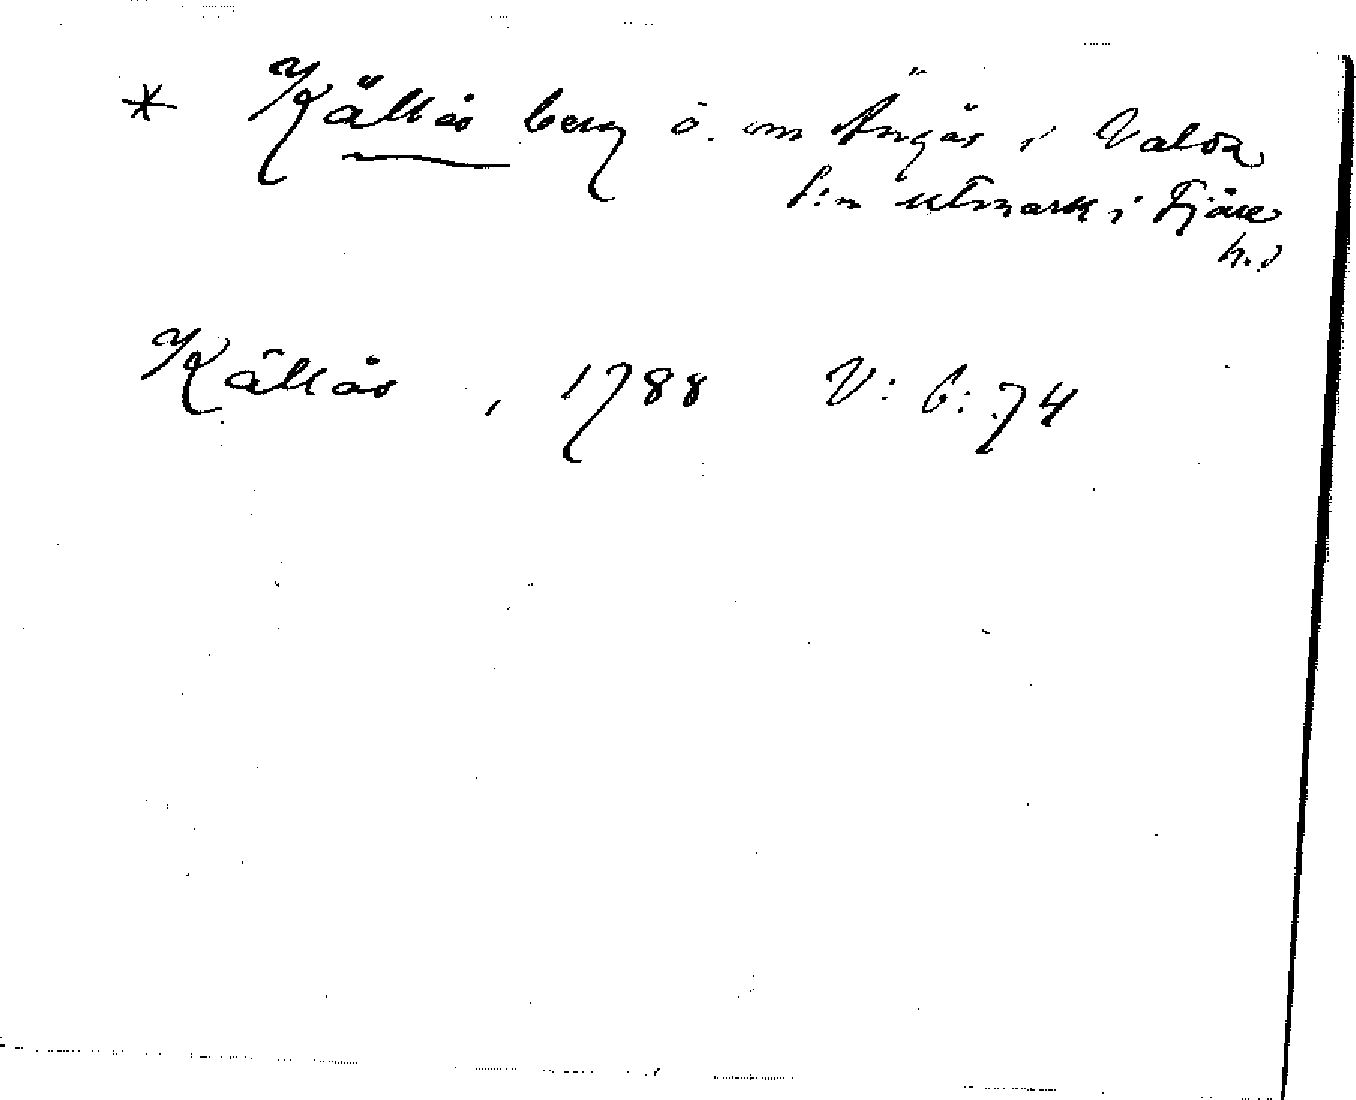 * Källås berg ö. om Ängås i Valda
s:n utmark i Fjäre
h.d
Källås, 1788 V: 6: 74